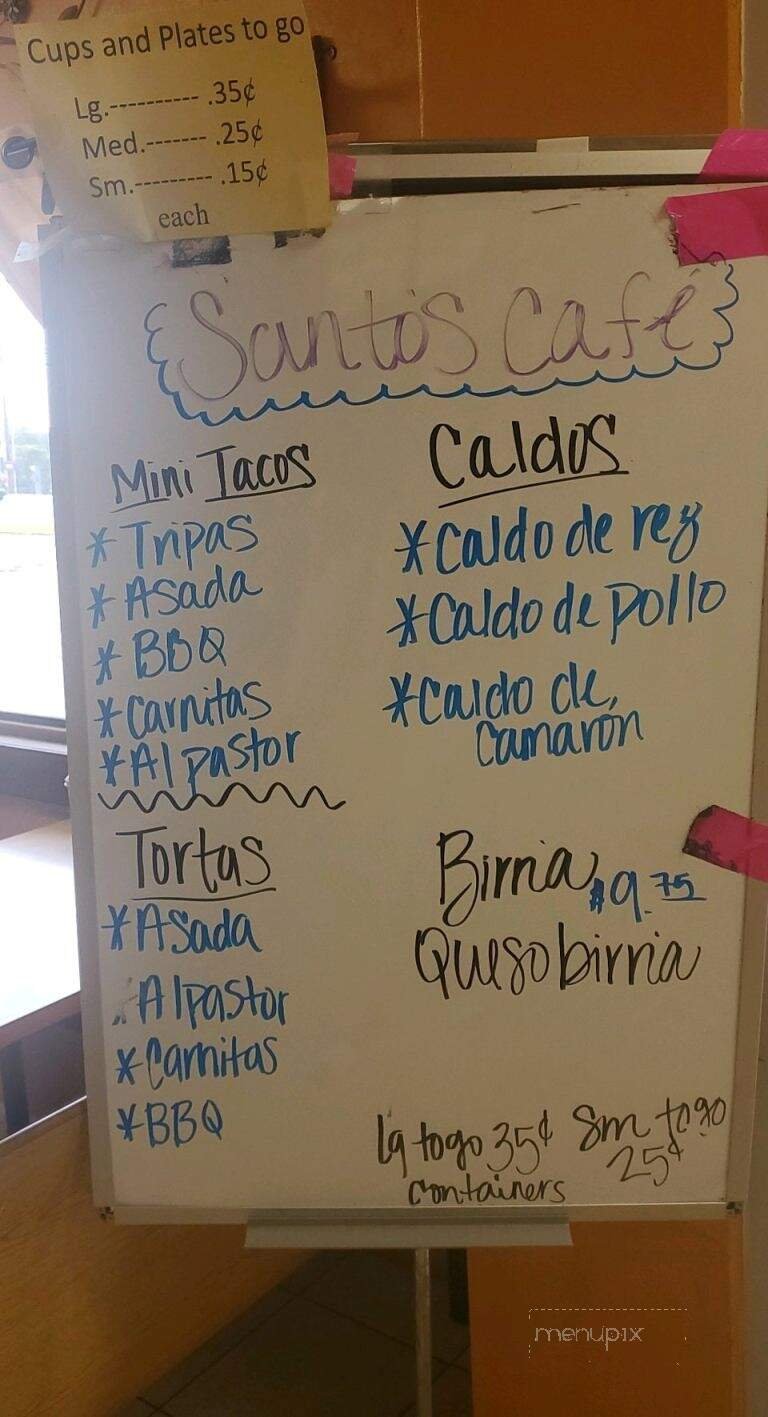 Cups and Plates to go
Lg.---------- .35¢
Med.------- .25¢
Sm.--------- .15¢
each
Santo's Café
Mini Tacos
* Tripas
* Asada
* BBQ
* Carnitas
* Al pastor
Tortas
* Asada
* Al pastor
* Carnitas
* BBQ
Caldos
* Caldo de rez
* Caldo de pollo
* Caldo de
camaron
Birria $9.75
Quesobirria
lg to go 35¢
containers
Sm to go
25¢
menupix